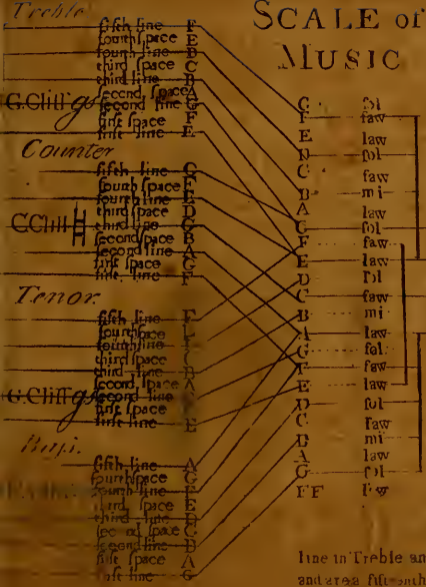 Treble
fifth line F
fourth space E
fourth line D
third space C
third line B
second space A
G.Cliff second line G
first space F
first line E
Counter
fifth line G
fourth space F
fourth line E
third space D
C.Cliff third line C
second space B
second line A
first space G
first line F
Tenor.
fifth line F
fourth space E
fourth line
third space C
third line B
second space A
G.Cliff second line G
first space
first line E
Bass.
fifth line A
fourth space G
fourth line F
third space E
third line D
second space C
second line B
first space A
first line G
SCALE of
MUSIC
G sol
F faw
E law
D sol
C faw
B mi
A law
G sol
F faw
E law
D sol
C faw
B mi
A law
G sol
F faw
E law
D sol
C faw
B mi
A law
G sol
FF faw
line in Treble an
and are a fifteenth